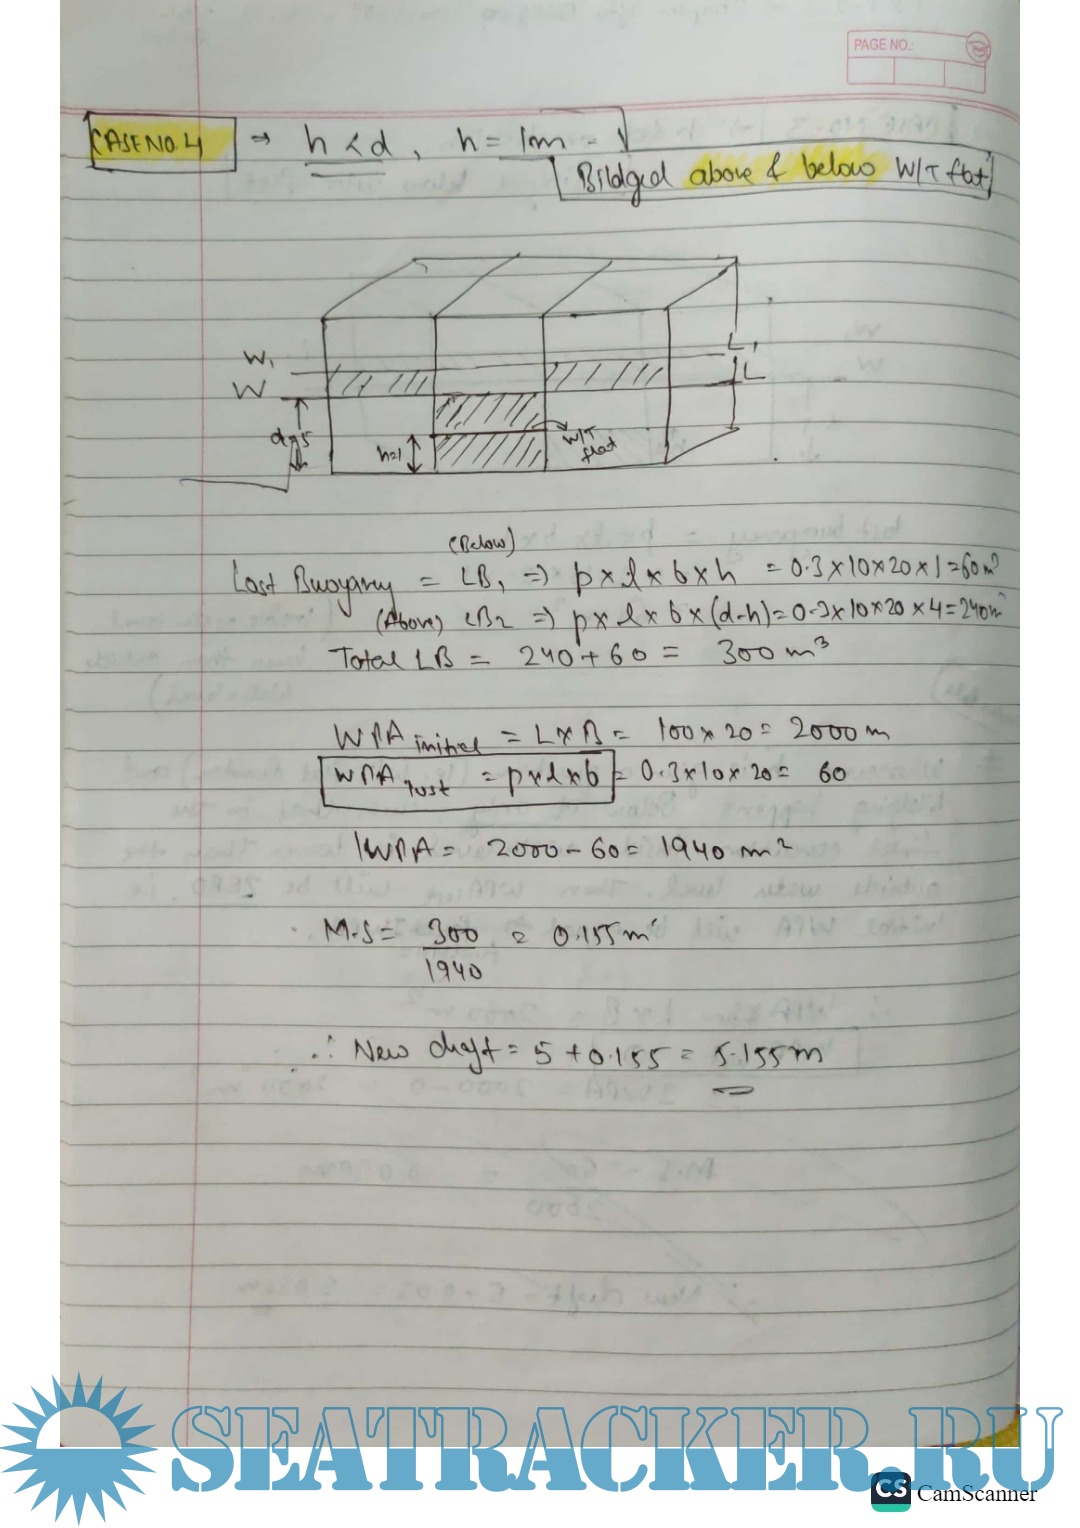 PAGE NO.:
CASE NO. 4 → h < d, h = 1m -
Bildged above & below W/T flat
W1 L1
W L
d=5
h=1
W/T flat
(Below)
Lost Buoyancy = LB1 ⇒ p x l x b x h = 0.3 x 10 x 20 x 1 = 60 m³
(Above) LB2 ⇒ p x l x b x (d-h) = 0.3 x 10 x 20 x 4 = 240 m³
Total LB = 240 + 60 = 300 m³
WPA initial = L x B = 100 x 20 = 2000 m
WPA lost = p x l x b = 0.3 x 10 x 20 = 60
IWPA = 2000 - 60 = 1940 m²
M.S = 300/1940 = 0.155 m
∴ New draft = 5 + 0.155 = 5.155 m
SEATRACKER.RU
CS CamScanner